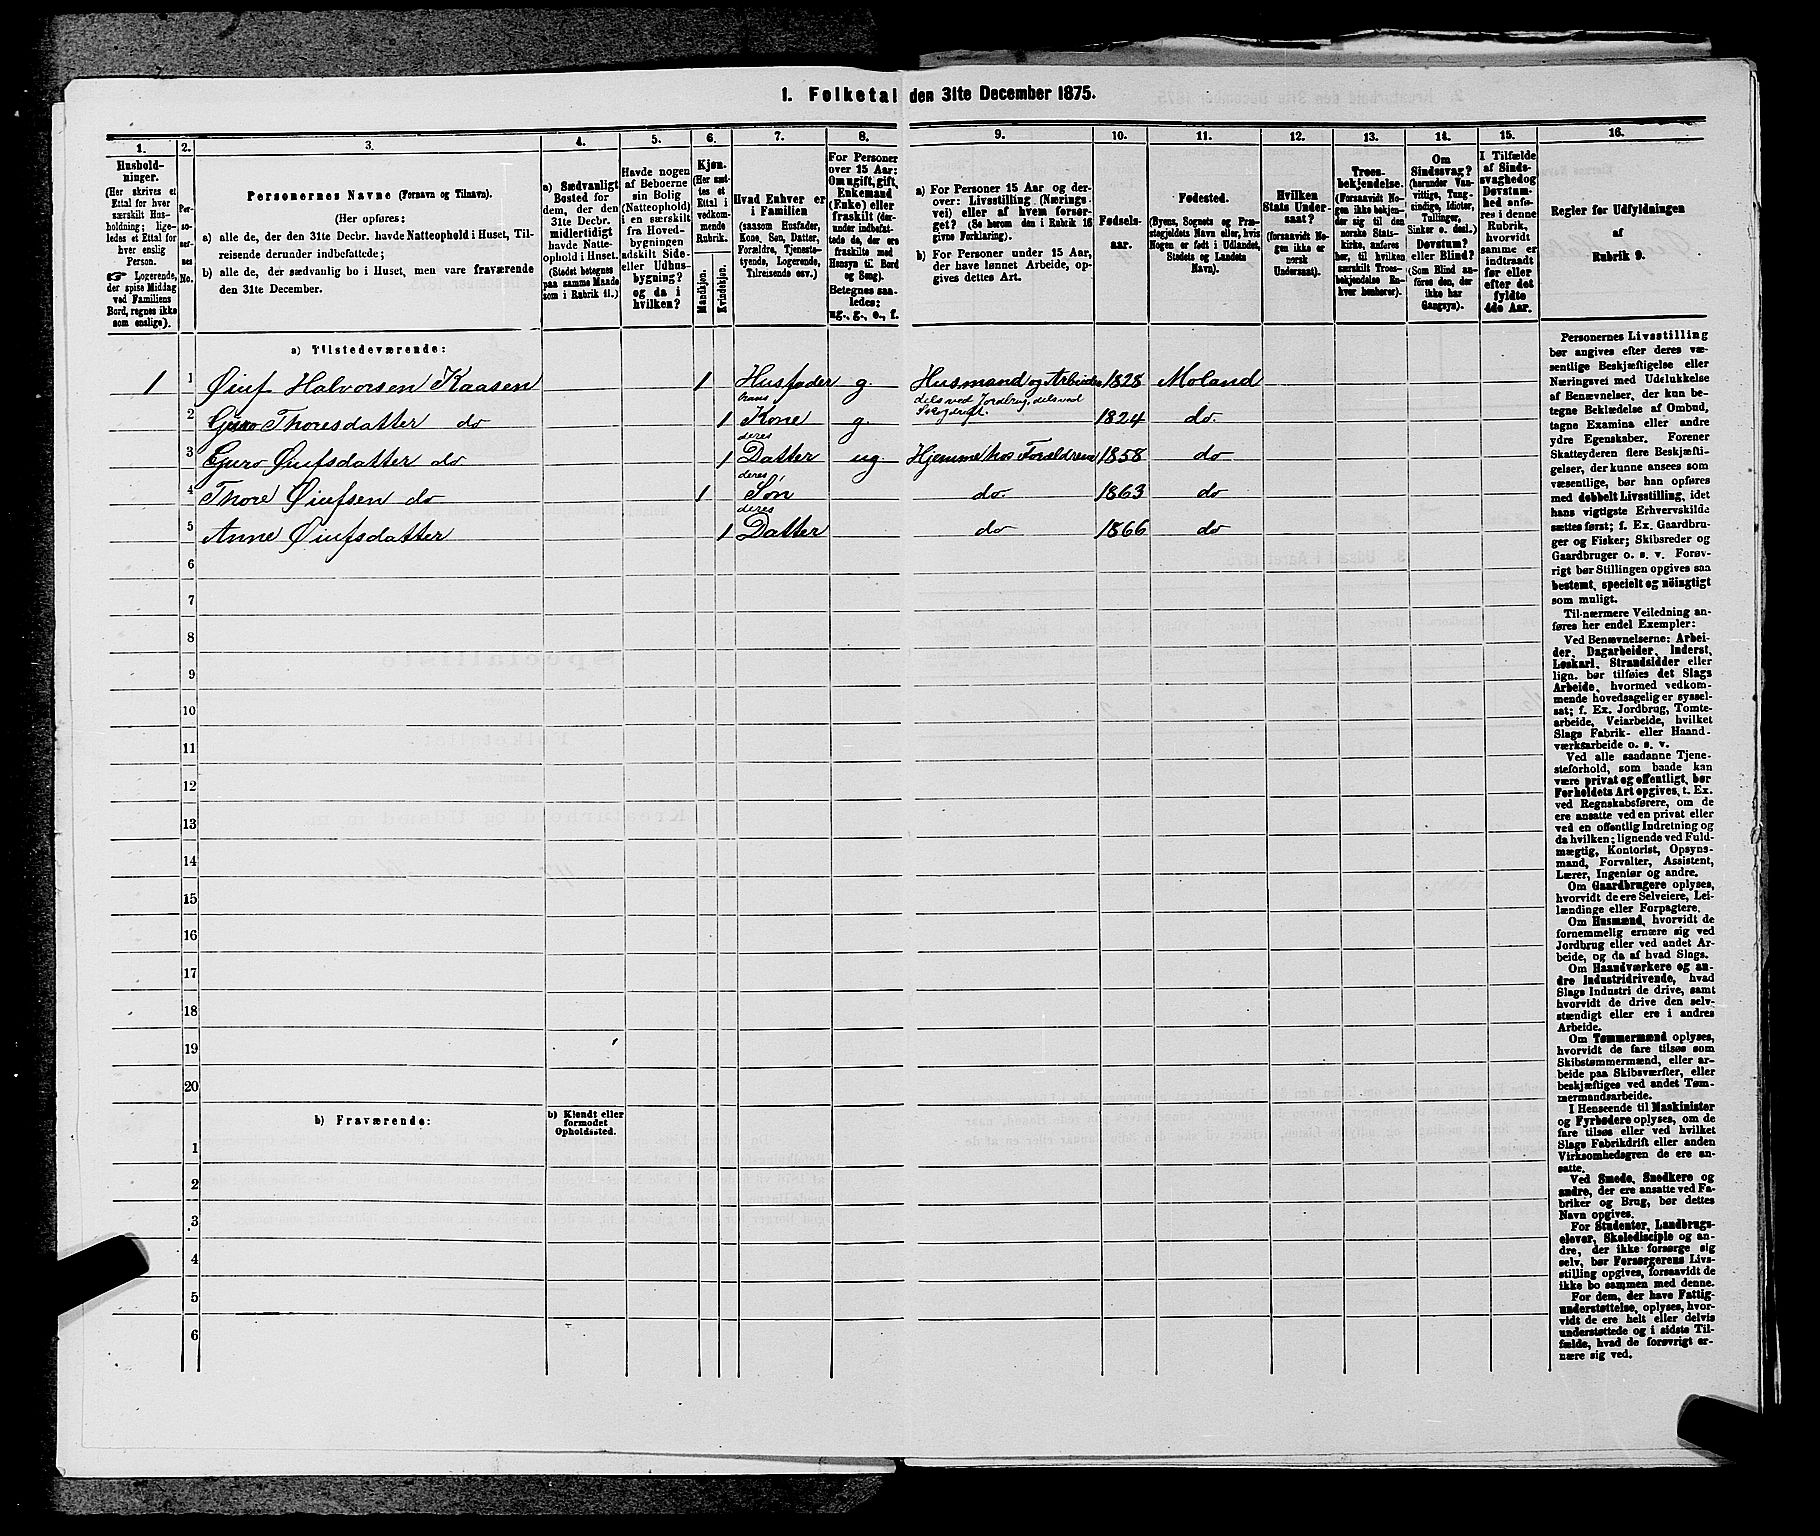 1. Folketal den 31te December 1875.
1.
Hushold-
ninger.
(Her skrives et
Ettal for hver
særskilt Hus-
holdning; lige-
ledes et Ettal for
hver enslig
Person.
☞ Logerende,
der spise Middag
ved Familiens
Bord, regnes ikke
som enslige).
2.
Per-
so-
ner-
nes
No.
3.
Personernes Navne (Fornavn og Tilnavn).
(Her opføres:
a) alle de, der den 31te Decbr. havde Natteophold i Huset, Til-
reisende derunder indbefattede;
b) alle de, der sædvanlig bo i Huset, men vare fraværende
den 31te December.
4.
a) Sædvanligt
Bosted for
dem, der den
31te Decbr.
midlertidigt
havde Natte-
ophold i Huset.
(Stedet betegnes
paa samme Maade
som i Rubrik 11.)
5.
Havde nogen
af Beboerne
sin Bolig
(Natteophold)
i en særskilt
fra Hoved-
bygningen
adskilt Side-
eller Udhus-
bygning?
og da i
hvilken?
6.
Kjøn.
(Her sæt-
tes et
Ettal i
vedkom-
mende
Rubrik.
Mandkjøn.
Kvindekjøn.
7.
Hvad Enhver er
i Familien
(saasom Husfader,
Kone, Søn, Datter,
Forældre, Tjeneste-
tyende, Logerende,
Tilreisende osv.)
8.
For Personer
over 15 Aar:
Om ugift, gift,
Enkemand
(Enke) eller
fraskilt (der-
under indbefat-
tede de, der ere
fraskilte med
Hensyn til Bord
og Seng).
Betegnes saa-
ledes:
ug., g., e., f.
9.
a) For Personer 15 Aar og der-
over: Livsstilling (Nærings-
vei) eller af hvem forsør-
get? (Se herom den i Rubrik 16
givne Forklaring).
b) For Personer under 15 Aar,
der have lønnet Arbeide, op-
gives dettes Art.
10.
Fødsels-
aar.
11.
Fødested.
(Byens, Sognets og Præ-
stegjeldets Navn eller, hvis
Nogen er født i Udlandet,
Stedets og Landets
Navn).
12.
Hvilken
Stats Under-
saat?
(forsaavidt No-
gen ikke er
norsk
Undersaat).
13.
Troes-
bekjendelse.
(Forsaavidt No-
gen ikke bekjen-
der sig til den
norske Stats-
kirke, anføres
her, til hvilken
særskilt Troes-
bekjendelse En-
hver henhører).
14.
Om
Sindssvag?
(herunder Van-
vittige, Tung-
sindige, Idioter,
Tullinger,
Sinker o. desl.)
Døvstum?
eller Blind?
(Som Blind an-
føres den, der
ikke har
Gangsyn).
15.
I Tilfælde
af Sinds-
svaghed og
Døvstum-
hed anfø-
res i denne
Rubrik,
hvorvidt
samme er
indtraadt
før eller
efter det
fyldte
4de Aar.
16.
Regler for Udfyldningen
af
Rubrik 9.
a) Tilstedeværende:
1 1 Øiuf Halvorsen Kaasen 1 Husfader g. Husmand og Arbeider dels ved Jordbrug, dels ved Skogdrift. 1828 Moland
2 Guro Thoresdatter do 1 hans Kone g. 1824 do.
3 Guro Øiufsdatter do 1 deres Datter ug. Hjemme hos Forældrene 1858 do
4 Thore Øiufsen do 1 deres Søn do. 1863 do
5 Anne Øiufsdatter 1 deres Datter do 1866 do
6
7
8
9
10
11
12
13
14
15
16
17
18
19
20
b) Fraværende:
b) Kjendt eller
formodet
Opholdssted.
1
2
3
4
5
6
Personernes Livsstilling
bør angives efter deres væ-
sentlige Beskjæftigelse eller
Næringsvei med Udelukkelse
af Benævnelser, der kun be-
tegne Beklædelse af Ombud,
tagne Examina eller andre
ydre Egenskaber. Forener
Skatteyderen flere Beskjæfti-
gelser, der kunne ansees som
væsentlige, bør han opføres
med dobbelt Livsstilling, idet
hans vigtigste Erhvervskilde
sættes først; f. Ex. Gaardbru-
ger og Fisker; Skibsreder og
Gaardbruger o. s. v. Forøv-
rigt bør Stillingen opgives saa
bestemt, specielt og nöiagtigt
som muligt.
Til nærmere Veiledning an-
føres her endel Exempler:
Ved Benævnelserne: Arbei-
der, Dagarbeider, Inderst,
Løskarl, Strandsidder eller
lign. bør tilføies det Slags
Arbeide, hvormed vedkom-
mende hovedsagelig er syssel-
sat; f. Ex. Jordbrug, Tomte-
arbeide, Veiarbeide, hvilket
Slags Fabrik- eller Haand-
værksarbeide o. s. v.
Ved alle saadanne Tjene-
steforhold, som baade kan
være privat og offentligt, bør
Forholdets Art opgives, t. Ex.
ved Regnskabsførere, om de
ere ansatte ved en privat eller
ved en offentlig Indretning og
da hvilken; lignende ved Fuld-
mægtig, Kontorist, Opsyns-
mand, Forvalter, Assistent,
Lærer, Ingeniør og andre.
Om Gaardbrugere oplyses,
hvorvidt de ere Selveiere, Lei-
lændinge eller Forpagtere.
Om Husmænd, hvorvidt de
fornemmelig ernære sig ved
Jordbrug eller ved andet Ar-
beide, og da af hvad Slags.
Om Haandværkere og an-
dre Industridrivende, hvad
Slags Industri de drive, samt
hvorvidt de drive den selv-
stændigt eller ere i andres
Arbeide.
Om Tømmermænd oplyses,
hvorvidt de fare tilsøs som
Skibstømmermænd, eller ar-
beide paa Skibsværfter, eller
beskjæftiges ved andet Tøm-
mermandsarbeide.
I Henseende til Maskinister
og Fyrbødere oplyses, om de
fare tilsøs eller ved hvilket
Slags Fabrikdrift eller anden
Virksomhedsgren de ere an-
satte.
Ved Smede, Snedkere og
andre, der ere ansatte ved Fa-
briker og Brug, bør dettes
Navn opgives.
For Studenter, Landbrugs-
elever, Skoledisciple og an-
dre, der ikke forsørge sig
selv, bør Forsørgerens Livs-
stilling opgives, forsaavidt de
ikke bo sammen med denne.
For dem, der have Fattig-
understøttelse, oplyses, hvor-
vidt de ere helt eller delvis
understøttede og i sidste Til-
fælde, hvad de forøvrigt er-
nære sig ved.